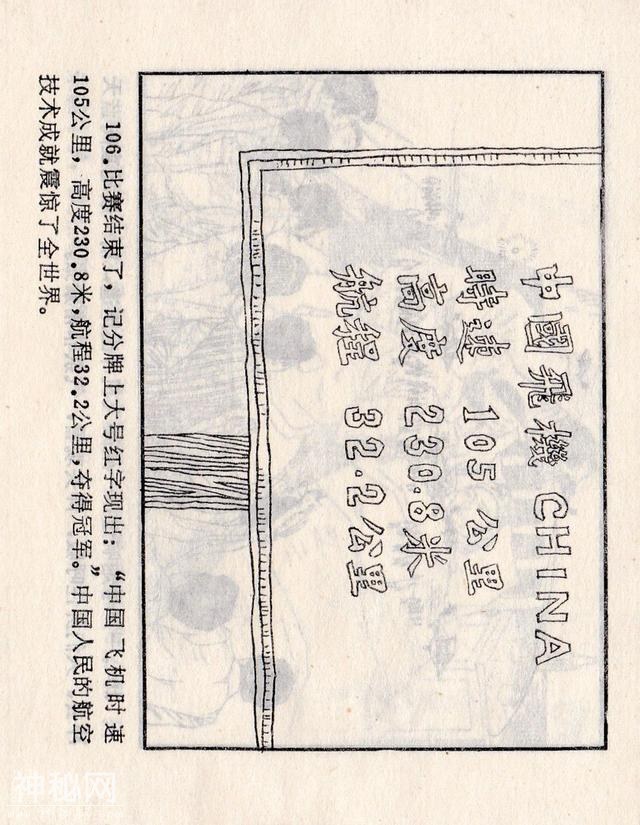 中國飛機 CHINA
時速 105 公里
高度 230.8米
航程 32.2公里
106.比赛结束了，记分牌上大号红字现出：“中国飞机时速
105公里，高度230.8米，航程32.2公里，夺得冠军。”中国人民的航空
技术成就震惊了全世界。
神秘网